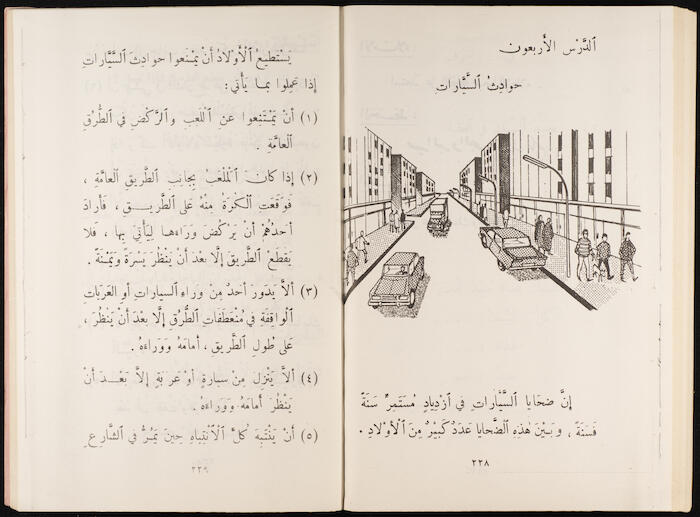 الدَّرْس الأربعون
حوادِثُ السَّيَّارات
إنَّ ضَحايا السَّيَّاراتِ في ازْدِيادٍ مُسْتَمِرٍّ سَنَةً
فَسَنَةً ، وبَيْنَ هٰذِهِ الضَّحايا عَدَدٌ كَبيرٌ مِنَ الأَوْلادِ .
٢٢٨
يَسْتَطيعُ الأَوْلادُ أنْ يَمْنَعوا حوادِثَ السَّيَّاراتِ
إذا عَمِلوا بما يَأْتي :
(١) أنْ يَمْتَنِعوا عنِ اللَّعِبِ والرَّكْضِ في الطُّرُقِ
العامَّةِ .
(٢) إذا كانَ المَلْعَبُ بِجانِبِ الطَّريقِ العامَّةِ ،
فَوَقَعَتِ الكُرَةُ مِنْهُ عَلى الطَّريقِ ، فَأرادَ
أحَدُهُمْ أنْ يَرْكُضَ وَراءَها لِيَأْتِيَ بِها ، فَلا
يَقْطَعِ الطَّريقَ إلَّا بعدَ أنْ يَنْظُرَ يَسْرَةً وَيَمْنَةً .
(٣) ألاَّ يَدورَ أحَدٌ مِنْ وَراءِ السيارات أوِ العَرَباتِ
الواقِفَةِ في مُنْعَطَفاتِ الطُّرُقِ إلَّا بعدَ أنْ يَنْظُرَ ،
عَلى طُولِ الطَّريقِ ، أمامَهُ وَوَراءَهُ .
(٤) ألاَّ يَنْزِلَ مِنْ سيارةٍ أوْ عَرَبَةٍ إلَّا بَعْدَ أنْ
يَنْظُرَ أمامَهُ وَوَراءَهُ .
(٥) أنْ يَنْتَبِهَ كُلَّ الاِنْتِباهِ حينَ يَمُرُّ في الشَّارِعِ
٢٢٩